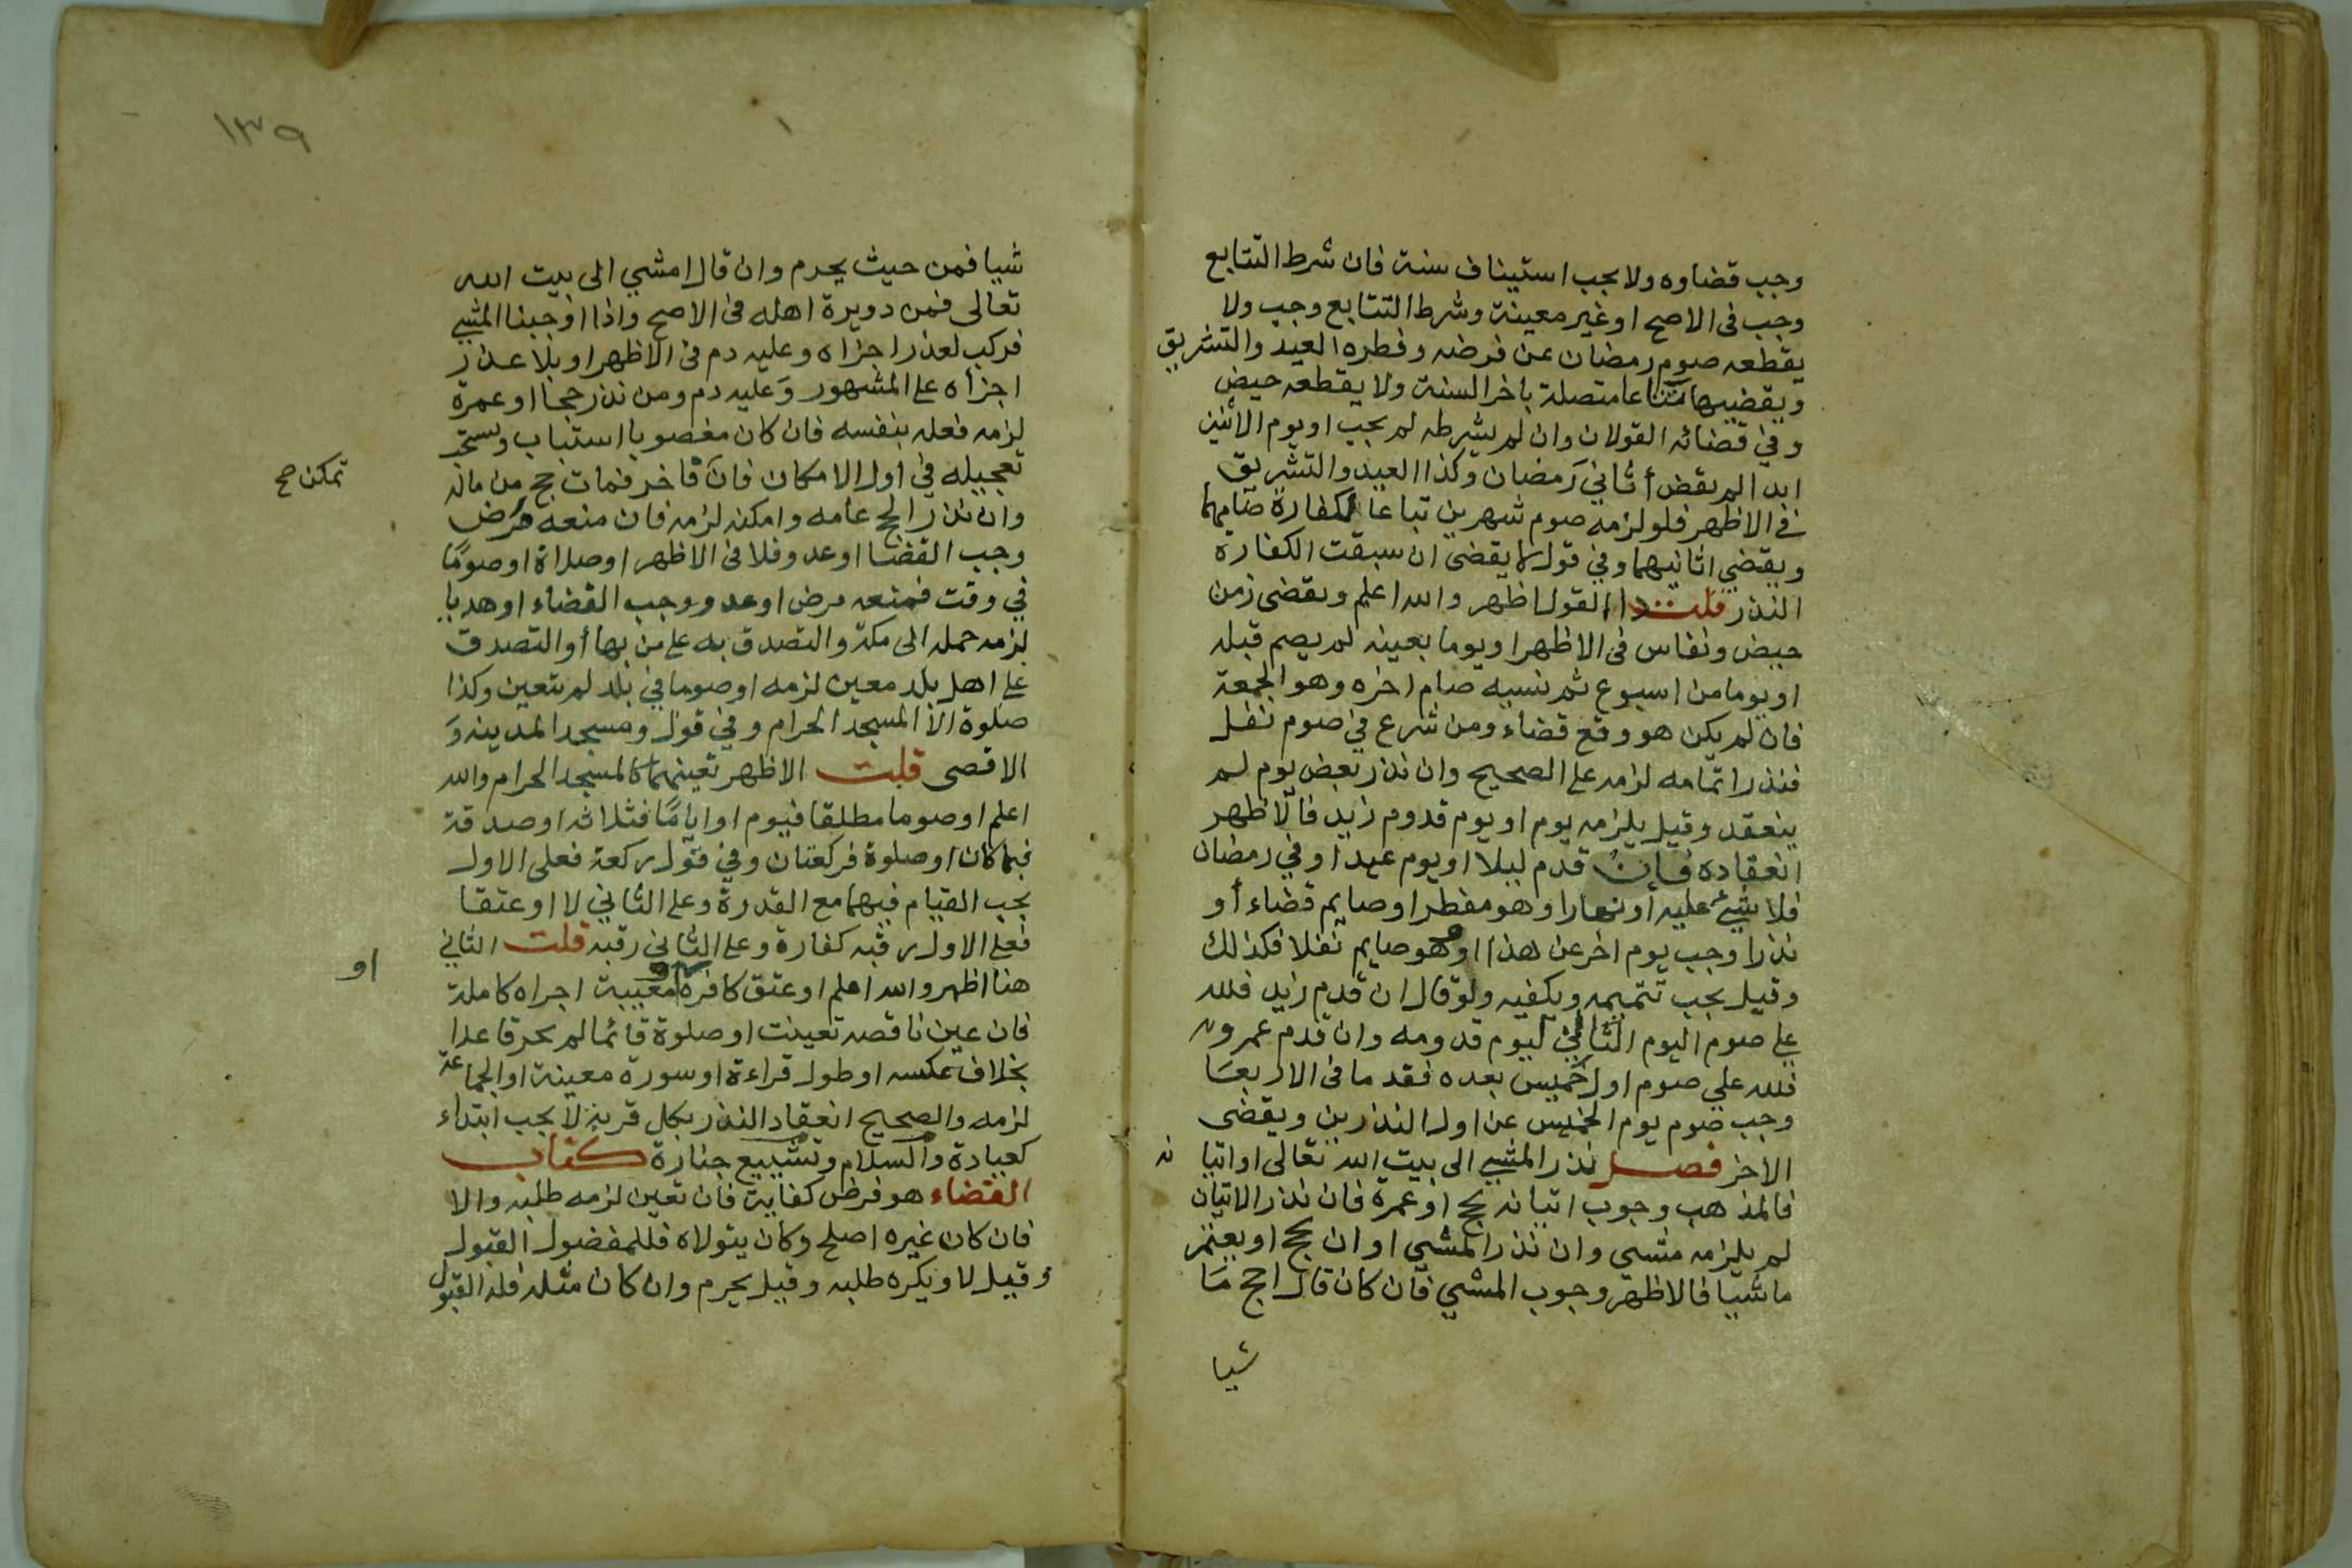 وجب قضاوه ولا يجب استيناف سنة فان شرط التتابع
وجب فى الاصح او غير معينة وشرط التتابع وجب ولا
يقطعه صوم رمضان عن فرضه وفطره العيد والتشريق
ويقضيها تباعا متصلة باخر السنة ولا يقطعه حيض
وفي قضائه القولان وان لم يشرطه لم يجب او يوم الاثنين
ابدا لم يقض أثاني رمضان وكذا العيد والتشريق
في الاظهر فلو لزمه صوم شهرين تباعا لكفارة صامهما
ويقضي اثانيهما وفي قول لا يقضى ان سبقت الكفارة
النذر قلت ذا القول اظهر والله اعلم ويقضى زمن
حيض ونفاس فى الاظهر او يوما بعينه لم يصم قبله
او يوما من اسبوع ثم نسيه صام اخره وهو الجمعة
فان لم يكن هو وقع قضاء ومن شرع في صوم نفل
فنذر اتمامه لزمه على الصحيح وان نذر بعض يوم لم
ينعقد وقيل يلزمه يوم او يوم قدوم زيد فالاظهر
انعقاده فان قدم ليلا او يوم عيد او في رمضان
فلا شيئ عليه أو نهارا وهو مفطر او صايم قضاء أو
نذرا وجب يوم اخر عن هذا او وهو صايم نفلا فكذلك
وقيل يجب تتميمه ويكفيه ولو قال ان قدم زيد فلله
علي صوم اليوم الثاني ليوم قدومه وان قدم عمرو
فلله علي صوم اول خميس بعده فقدما فى الاربعا
وجب صوم يوم الخميس عن اول النذرين ويقضى
الاخر فصل نذر المشي الى بيت الله تعالى او اتيا نه
فالمذهب وجوب اتيانه بحج او عمرة فان نذر الاتيان
لم يلزمه مشى وان نذر المشي او ان يحج او يعتمر
ماشيا فالاظهر وجوب المشي فان كان قال احج ما
شيا
١٣٩
شيا فمن حيث يحرم وان قال امشي الى بيت الله
تعالى فمن دويرة اهله فى الاصح واذا اوجبنا المشي
فركب لعذر اجزاه وعليه دم فى الاظهر او بلا عذر
اجزاه على المشهور وعليه دم ومن نذر حجا او عمرة
لزمه فعله بنفسه فان كان مغصوبا استناب ويستحب
تعجيله في اول الامكان فان فاخر فمات حج من ماله
تمكن صح
وان نذر الحج عامه وامكنه لزمه فان منعه مرض
وجب القضا او عدو فلا فى الاظهر او صلاة او صوما
في وقت فمنعه مرض او عدو وجب القضاء او هديا
لزمه حمله الى مكة والتصدق به على من بها أو التصدق
على اهل بلد معين لزمه او صوما في بلد لم يتعين وكذا
صلوة الا المسجد الحرام وفي قول ومسجد المدينه و
الاقصى قلت الاظهر تعينهما كالمسجد الحرام والله
اعلم او صوما مطلقا فيوم او اياما فثلاثه او صدقة
فبما كان او صلوة فركعتان وفي قول ركعة فعلى الاول
يجب القيام فيهما مع القدرة وعلى الثاني لا او عتقا
فعلى الاول رقبه كفارة وعلى الثانى رقبه قلت الثاني
هنا اظهر والله اعلم او عتق كافره معيبة اجراه كاملة
او
فان عين ناقصه تعينت او صلوة قائما لم يجز قاعدا
بخلاف عكسه او طول قراءة او سورة معينة او الجماعة
لزمه والصحيح انعقاد النذر بكل قربة لا يجب ابتداء
كعيادة والسلام وتشييع جنازة كتاب
القضاء هو فرض كفاية فان تعين لزمه طلبه والا
فان كان غيره اصلح وكان يتولاه فللمفضول القبول
وقيل لا ويكره طلبه وقيل يحرم وان كان مثله فله القبول